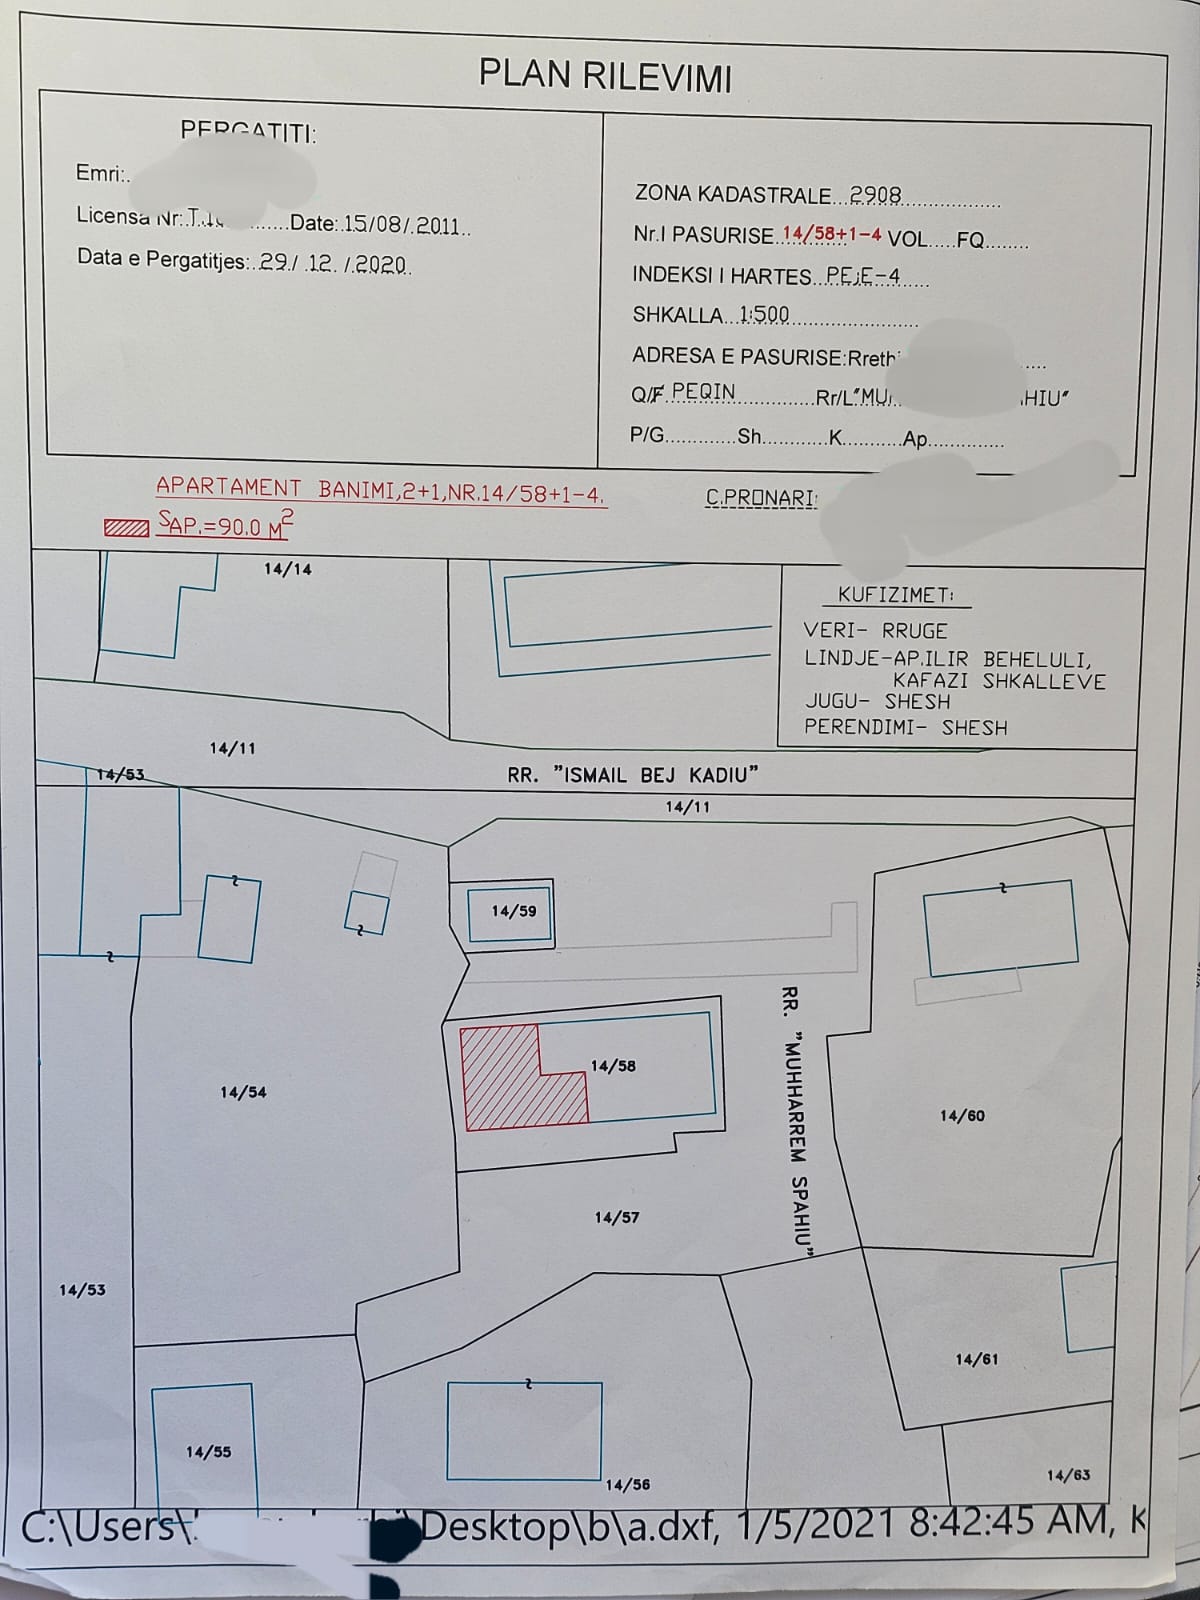 PLAN RILEVIMI
PERGATITI:
Emri:.
Licensa Nr:.T.1 ......Date:.15/08/.2011..
Data e Pergatitjes:..29./ .12. /.2020..
ZONA KADASTRALE...2908..................
Nr.I PASURISE.14/58+1-4 VOL.....FQ........
INDEKSI I HARTES...PEJE-4.....
SHKALLA...1:500......................
ADRESA E PASURISE:Rreth .....
Q/F.PEQIN..............Rr/L"MU HIU"
P/G.............Sh............K...........Ap...............
APARTAMENT BANIMI,2+1,NR.14/58+1-4.
SAP.=90.0 M2
C.PRONARI:
14/14
KUFIZIMET:
VERI- RRUGE
LINDJE-AP.ILIR BEHELULI,
KAFAZI SHKALLEVE
JUGU- SHESH
PERENDIMI- SHESH
14/11
14/53
RR. "ISMAIL BEJ KADIU"
14/11
14/59
RR. "MUHHARREM SPAHIU"
14/58
14/54
14/60
14/57
14/53
14/61
14/55
14/56
14/63
C:\Users\ Desktop\b\a.dxf, 1/5/2021 8:42:45 AM, K